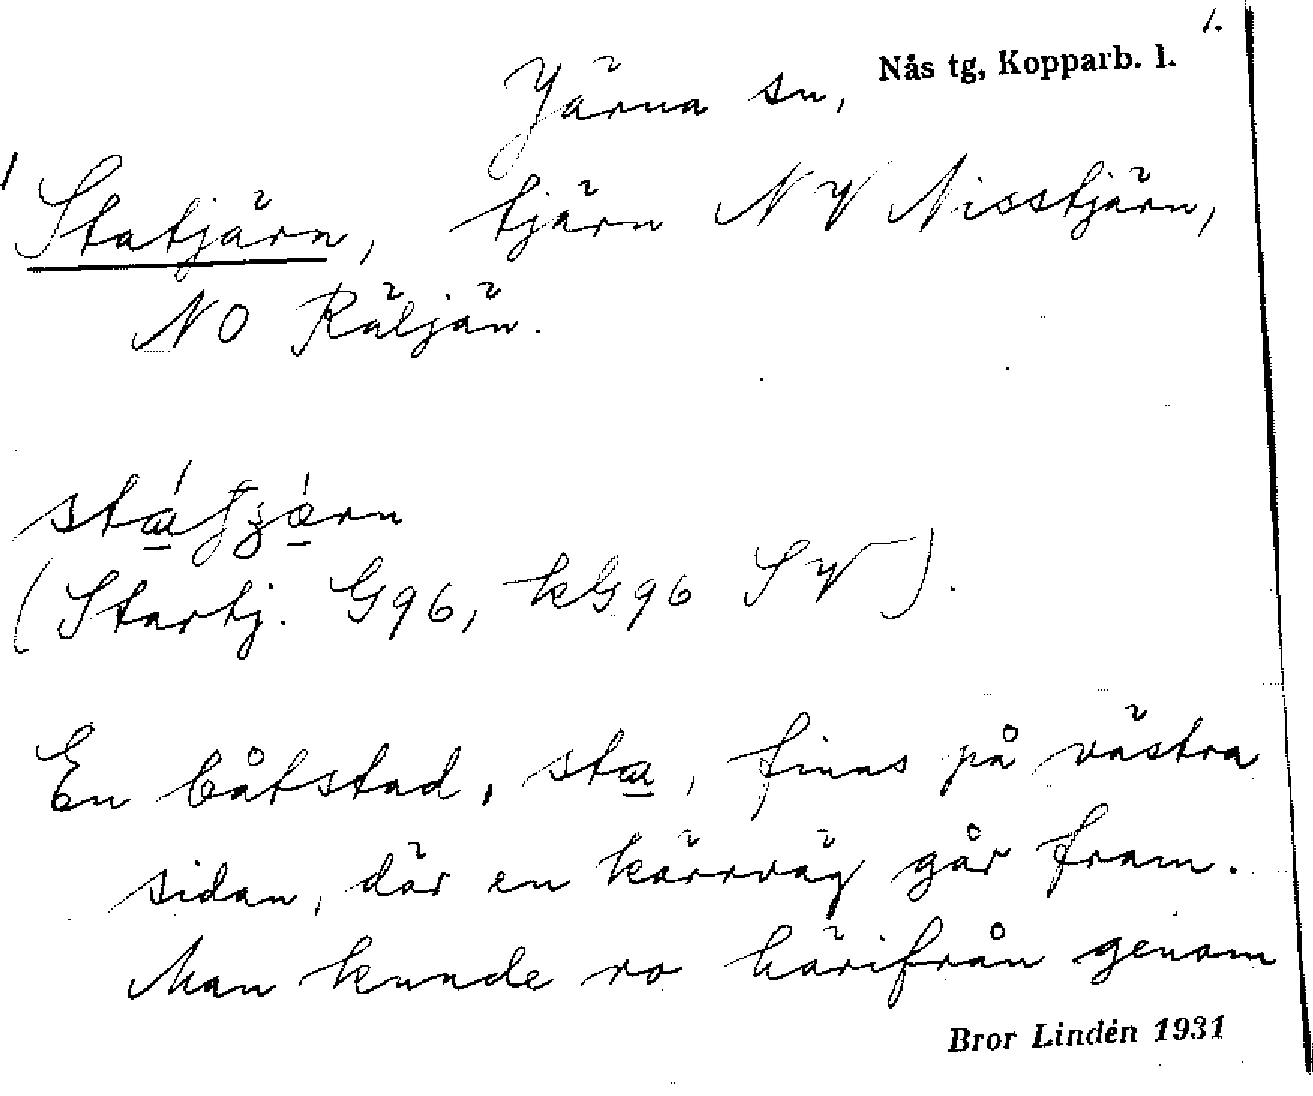 1.
Nås tg, Kopparb. l.
Järna sn,
Statjärn, tjärn NV Nisstjärn,
NO Räljän.
(Startj. G96, kG96 SV).
En båtstad, sta, finns på västra
sidan, där en kärrväg går fram.
Man kunde ro härifrån genom
Bror Lindén 1931